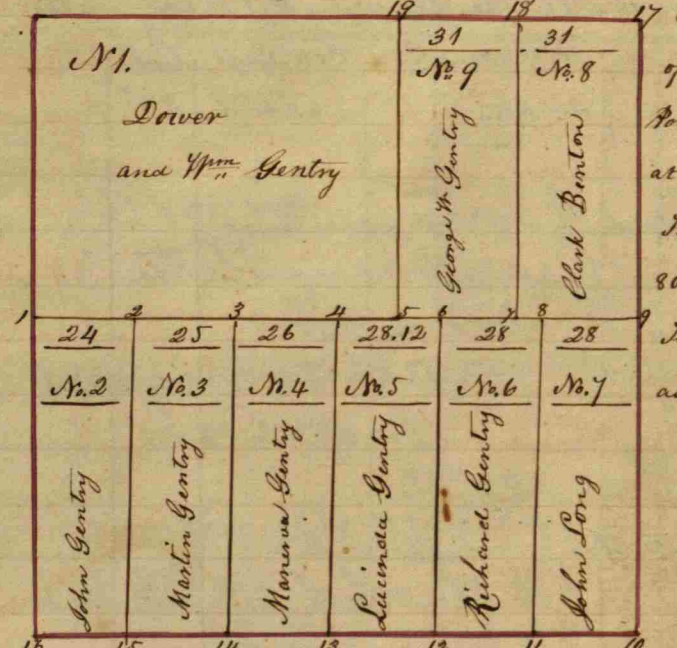 19 18 17
N1.
Dower
and Wm Gentry
31
No. 9
George W Gentry
31
No. 8
Clark Benton
at
80
1 2 3 4 5 6 7 8 9
24
No. 2
John Gentry
25
No. 3
Martin Gentry
26
No. 4
Manerva Gentry
28.12
No. 5
Lucinda Gentry
28
No. 6
Richard Gentry
28
No. 7
John Long
16 15 14 13 12 11 10